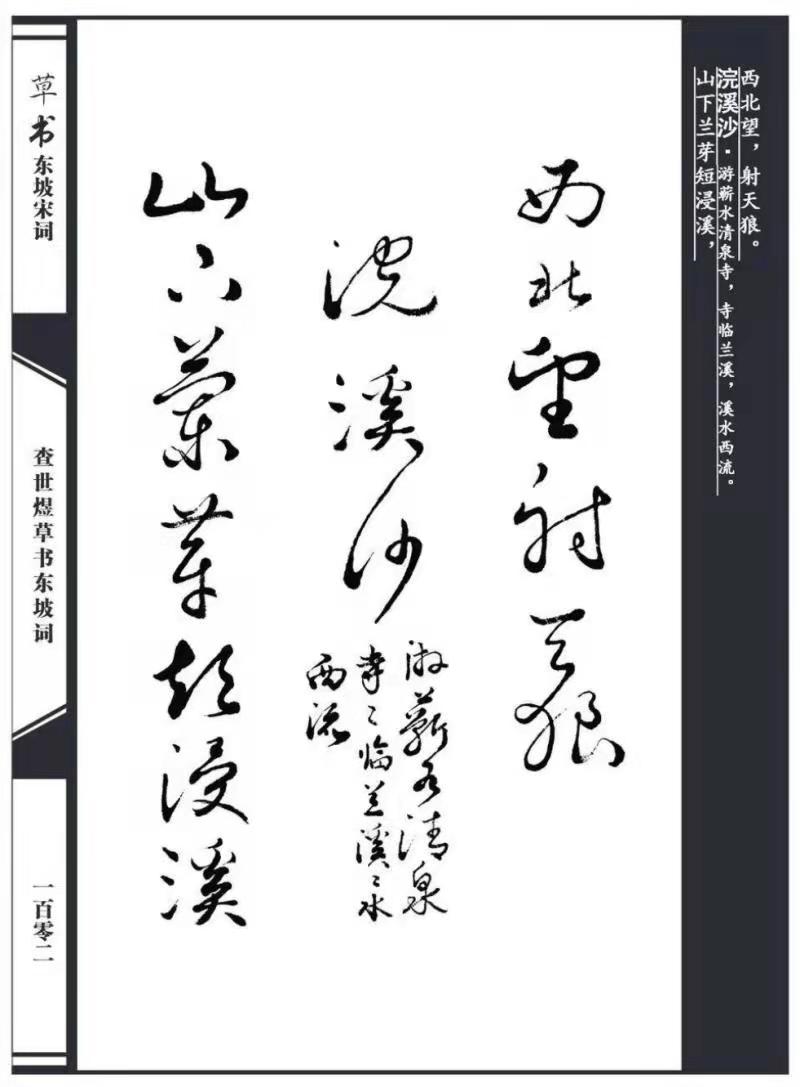 西北望，射天狼。
浣溪沙·游蕲水清泉寺，寺临兰溪，溪水西流。
山下兰芽短浸溪，
西北望射天狼
浣溪沙
游蘄水清泉
寺〻临兰溪〻水
西流
山下蘭芽短浸溪
草书东坡宋词
查世煜草书东坡词
一百零二